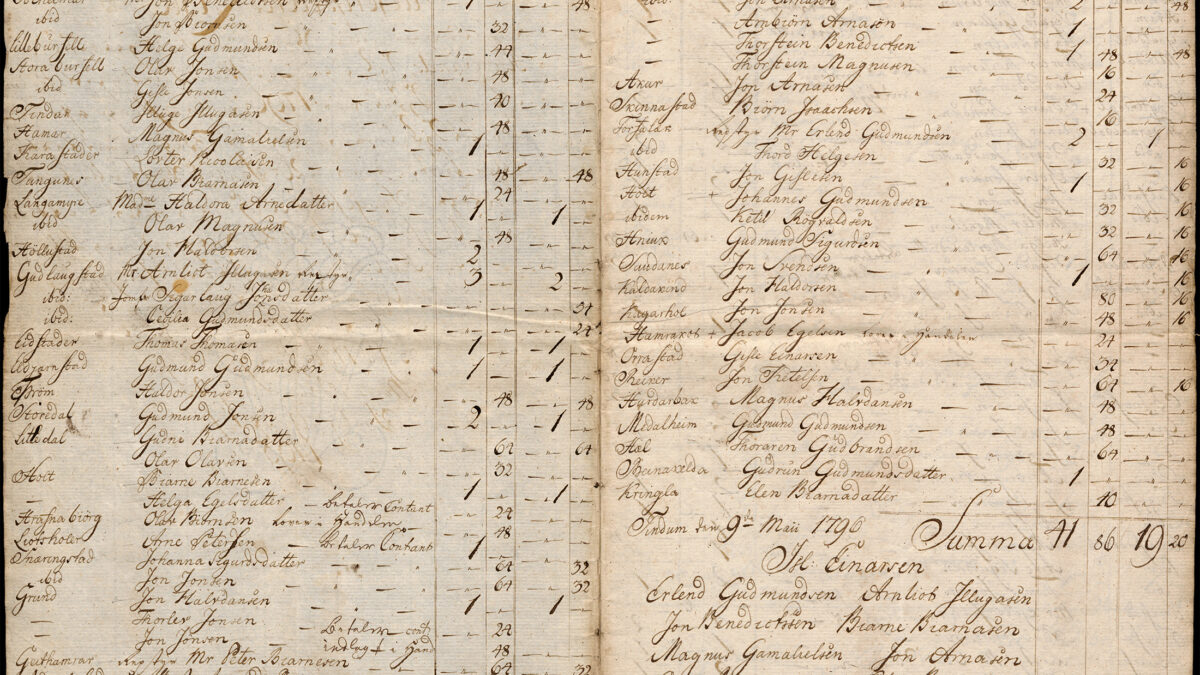 ibid Jon Biarnsen 32
Lilleburfell Helge Gudmundsen 44
Storaburfell Olav Jonsen 48
ibid Gisle Jonsen
Tindar Illuge Illugasen 40
Hamar Magnus Gamalielsen 48
Karastader Nicolaisen 1
Tungunes Olav Biarnasen 48 48
Langamyre Madme Haldora Arnedatter 24
ibid Olav Magnusen 1 1
Höllustad Jon Haldorsen 48
Gudlaugstad Mr Arnliot Illugasen 2
ibid: Sigurlaug Jonsdatter 3 2
ibid: Cecilia Gudmundsdatter 34
Eidstader Thomas Thomasen 24
Gudmund Gudmundsen 1 1
Ström Haldor Jonsen 1 1
Storedal Gudmund Jonsen 48 48
Litledal Gudne Biarnadatter 2 1
Olav Olavsen 64 64
Holt Biarne Biarnesen 32
— Helga Egelsdatter betaler Contant 1 1
Hrafnabiörg Olav Biarnsen lover i Handelen 24
Liotsholer Arne Petersen Betaler Contant 48
Snæringstad Johanna Sigurdsdatter 1
ibid Jon Jonsen 64 32
Grund Jon Halvdansen 64 32
— Thorlev Jonsen 1 1
— Jon Jonsen Betaler cont 24
Geithamrar Mr Peter Biarnesen 48
64 32
Arnbiörn Arnasen 1
— Thorstein Benedictsen 1
— Thorstein Magnusen 48 48
Akur Jon Arnasen 16
Skinnastad Biörn Isaachsen 24
Forsaluk Mr Erlend Gudmundsen 16
ibid Thord Helgesen 2 1
Hunstad Jon Gislesen 32 16
Holt + Johannes Gudmundsen 1 16
ibidem Ketil Rögvaldsen 32 16
Hniuk Gudmund Sigurdsen 32 16
Saudanes Jon Svendsen 64 16
Kaldakind Jon Haldorsen 1 16
Kagarhol Jon Jonsen 80 16
Hamrakot + Jacob Egelsen lover i Handelen 48 16
Orrastad Gisle Einarsen 24
Reiner Jon Ketelsen 34
Hurdarbak Magnus Halvdansen 64 16
Medalheim Gudmund Gudmundsen 48
Hæl Thoraren Gudbrandsen 48
Beinakelda Gudrun Gudmundsdatter 64
Kringla Elen Biarnadatter 1
40
Tindum den 9de Maii 1796 Summa 41 86 19 20
Isl: Einarsen
Erlend Gudmundsen Arnliot Illugasen
Jon Benedictssen Biarne Biarnasen
Magnus Gamalielsen Jon Arnasen